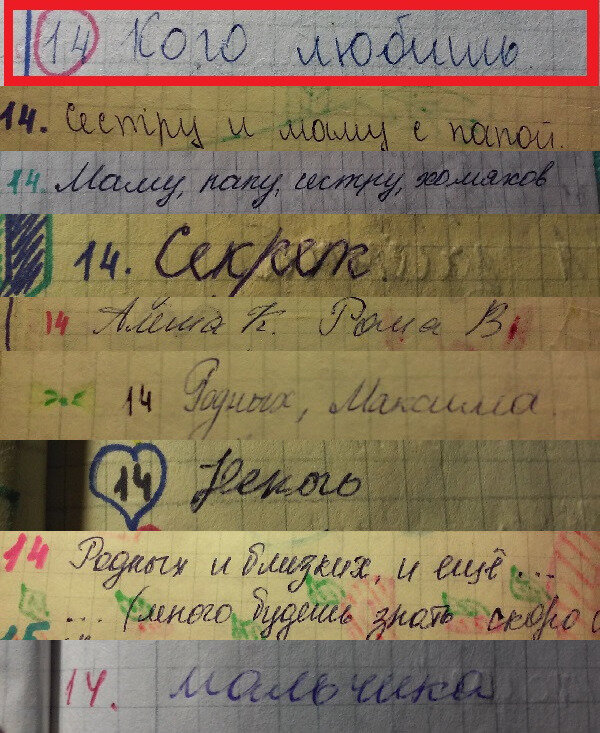 14 Кого любишь
14. Сестру и маму с папой.
14. Маму, папу, сестру, хомяков
14. Секрет
14 Алёша К. Рома В.
14 Родных, Максима.
14
14 Родных и близких, и ещё ...
... (много будешь знать скоро с
15
14. мальчика